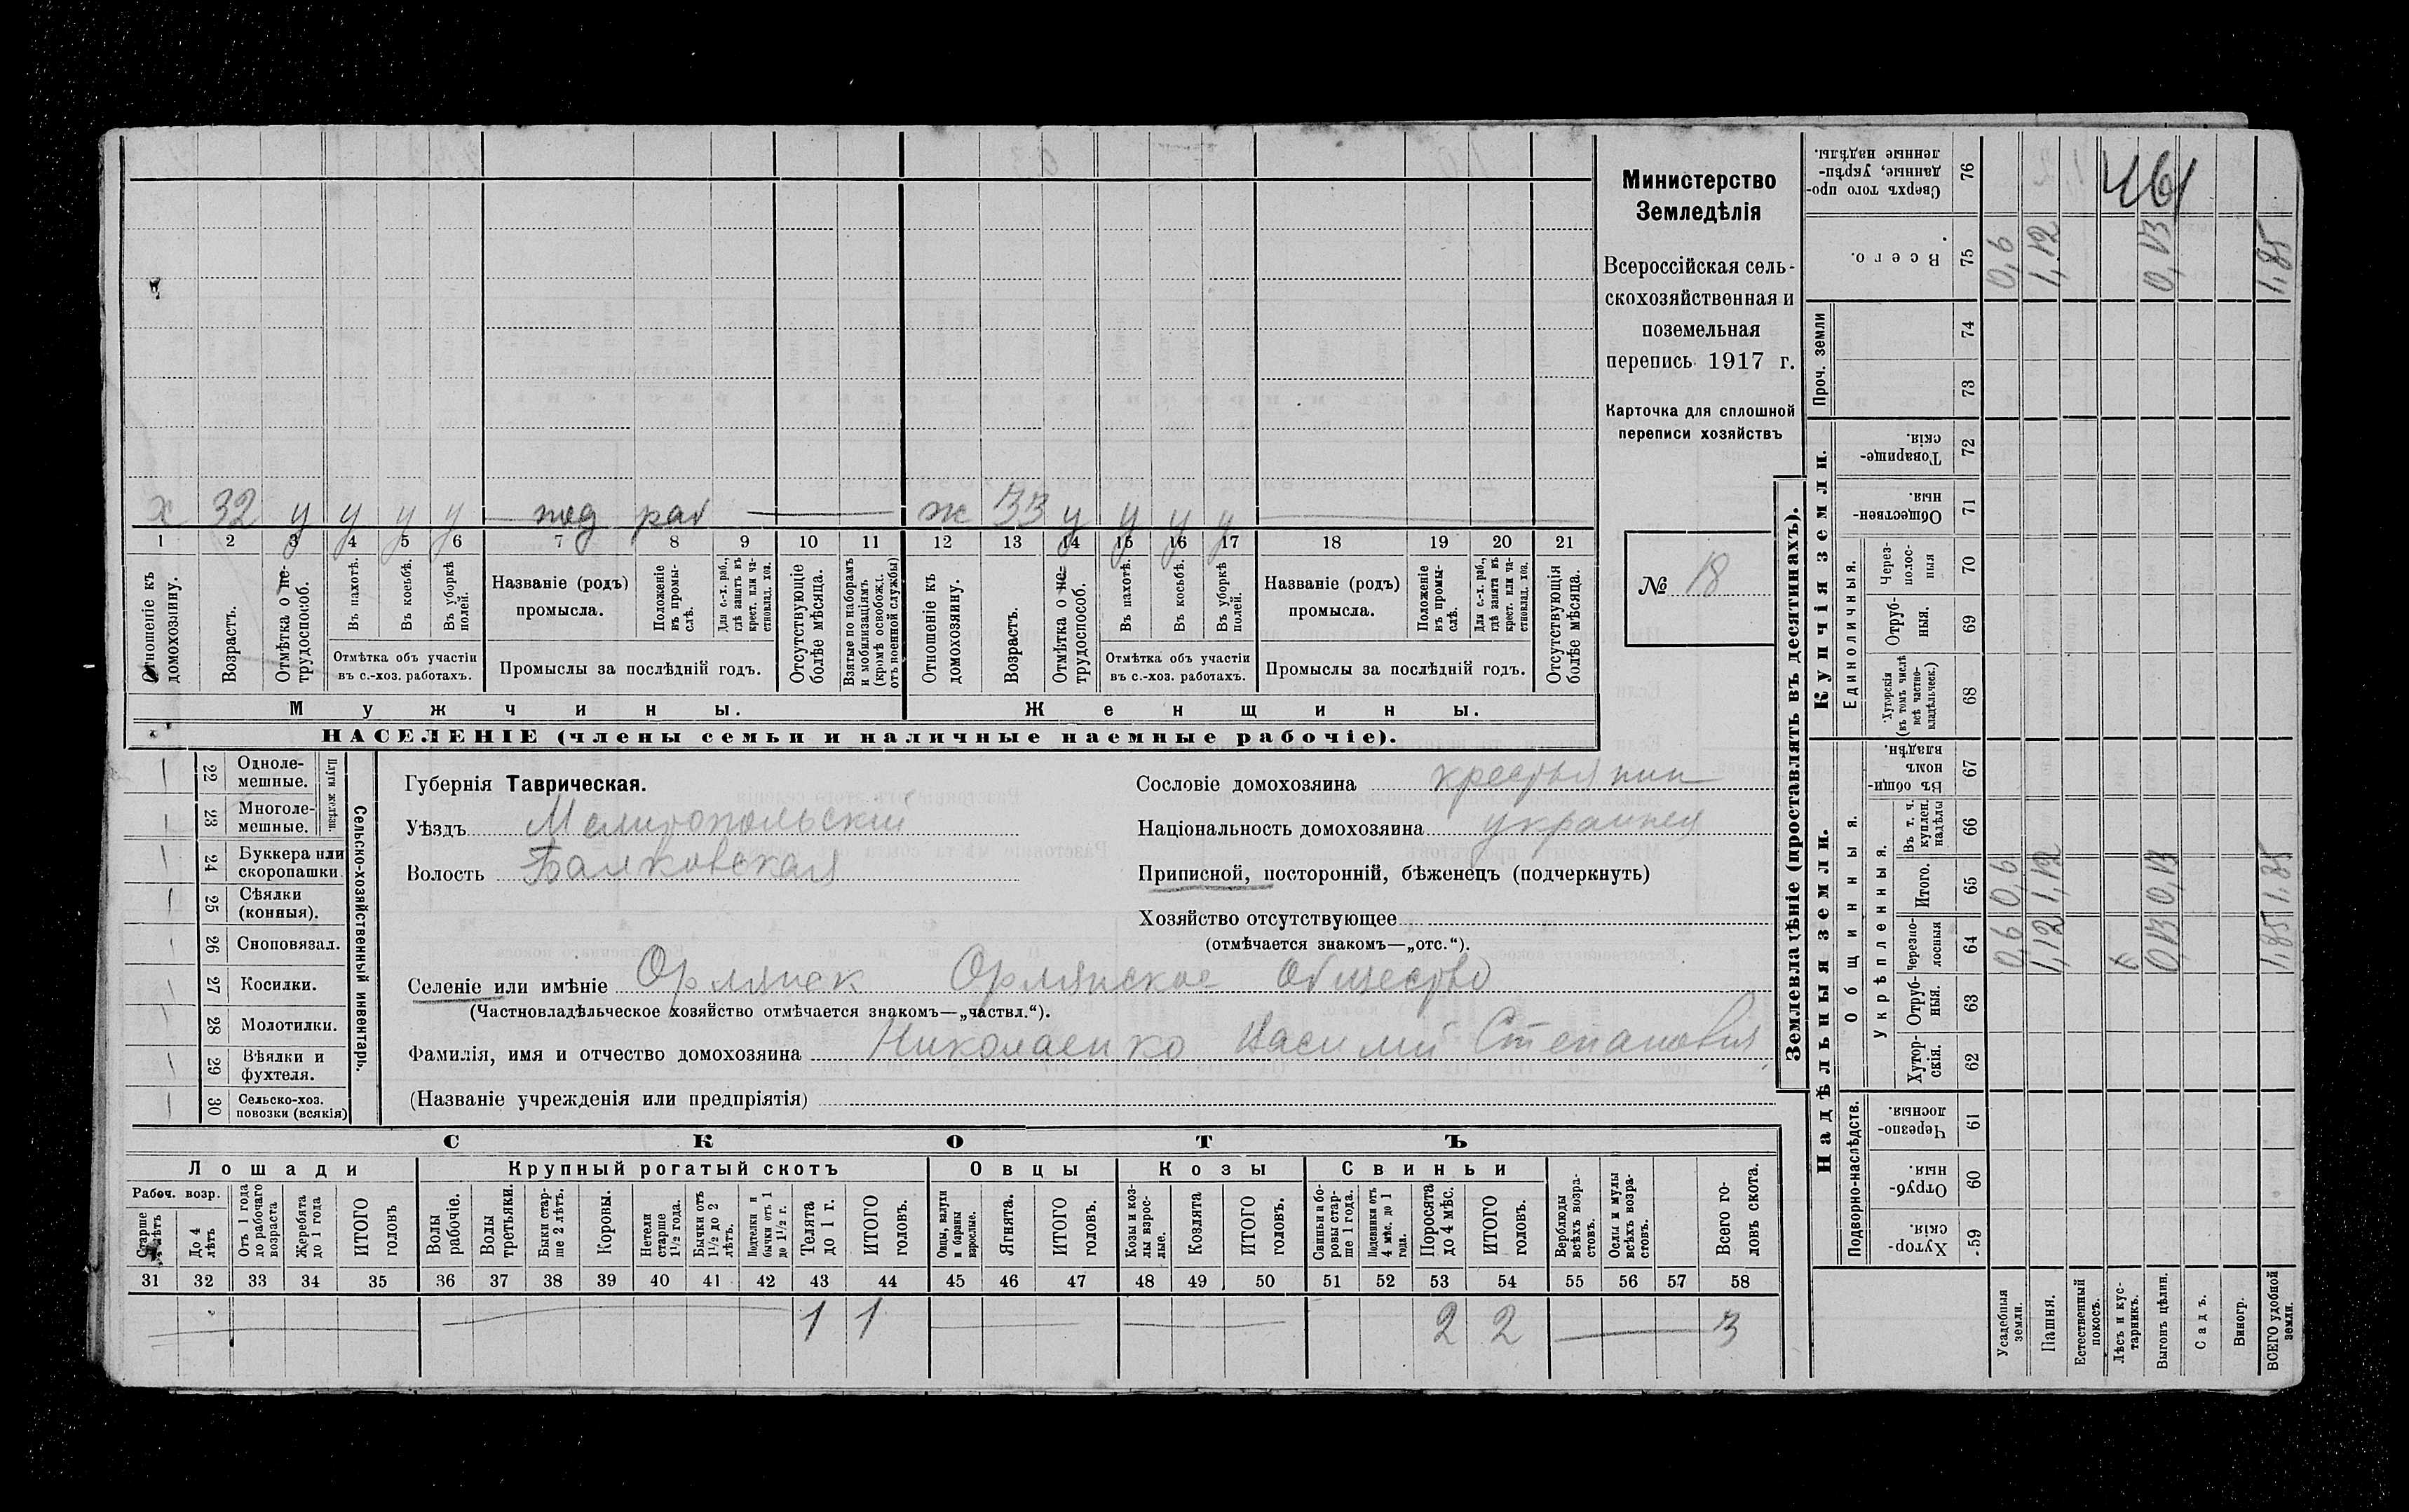 Министерство
Земледѣлія
Всероссійская сель-
скохозяйственная и
поземельная
перепись 1917 г.
Карточка для сплошной
переписи хозяйствъ
№ 18
х 32 у у у у под раб ж 33 у у у у
1 2 3 4 5 6 7 8 9 10 11 12 13 14 15 16 17 18 19 20 21
Отношеніе къ домохозяину.
Возрастъ.
Отмѣтка о не-трудоспособ.
Въ пахотѣ.
Въ косьбѣ.
Въ уборкѣ полей.
Отмѣтка объ участіи въ с.-хоз. работахъ.
Названіе (родъ) промысла.
Положеніе въ промы-слѣ.
Для с.-х. раб., гдѣ занятъ въ крест. или ча-стновлад. хоз.
Промыслы за послѣдній годъ.
Отсутствующіе болѣе мѣсяца.
Взятые по наборамъ и мобилизаціямъ (кромѣ освобожд. отъ военной службы)
Отношеніе къ домохозяину.
Возрастъ.
Отмѣтка о не-трудоспособ.
Въ пахотѣ.
Въ косьбѣ.
Въ уборкѣ полей.
Отмѣтка объ участіи въ с.-хоз. работахъ.
Названіе (родъ) промысла.
Положеніе въ промы-слѣ.
Для с.-х. раб., гдѣ занята въ крест. или ча-стновлад. хоз.
Промыслы за послѣдній годъ.
Отсутствующія болѣе мѣсяца.
Мужчины. Женщины.
НАСЕЛЕНІЕ (члены семьи и наличные наемные рабочіе).
22 Одноле-мешные.
23 Многоле-мешные.
Плуги желѣзн.
24 Буккера или скоропашки
25 Сѣялки (конныя).
26 Сноповязал.
27 Косилки.
28 Молотилки.
29 Вѣялки и фухтеля.
30 Сельско-хоз. повозки (всякія)
Сельско-хозяйственный инвентарь.
Губернія Таврическая.
Уѣздъ Мелитопольскій
Волость Балковская
Сословіе домохозяина крестьянин
Національность домохозяина украинец
Приписной, посторонній, бѣженецъ (подчеркнуть)
Хозяйство отсутствующее
(отмѣчается знакомъ—„отс.“).
Селеніе или имѣніе Орлянск Орлянское Общество
(Частновладѣльческое хозяйство отмѣчается знакомъ—„частвл.“).
Фамилія, имя и отчество домохозяина Николаенко Василий Степанович
(Названіе учрежденія или предпріятія)
СКОТЪ
Лошади Крупный рогатый скотъ Овцы Козы Свиньи
Рабоч. возр.
Старше 4 лѣтъ
До 4 лѣтъ
Отъ 1 года до рабочаго возраста
Жеребята до 1 года
ИТОГО головъ
Волы рабочіе.
Волы третьяки.
Быки стар-ше 2 лѣтъ.
Коровы.
Нетели старше 1½ года.
Бычки отъ 1½ до 2 лѣтъ.
Подтелки и бычки отъ 1 до 1½ г.
Телята до 1 г.
ИТОГО головъ.
Овцы, валухи и бараны взрослые.
Ягнята.
ИТОГО головъ.
Козы и коз-лы взрос-лые.
Козлята
ИТОГО головъ.
Свиньи и бо-ровы стар-ше 1 года.
Подсвинки отъ 4 мѣс. до 1 года.
Поросята до 4 мѣс.
ИТОГО головъ.
Верблюды всѣхъ возра-стовъ.
Ослы и мулы всѣхъ возра-стовъ.
Всего го-ловъ скота.
31 32 33 34 35 36 37 38 39 40 41 42 43 44 45 46 47 48 49 50 51 52 53 54 55 56 57 58
1 1 2 2 3
Землевладѣніе (проставлять въ десятинахъ).
Надѣльныя земли. Купчія земли. Проч. земли
Подворно-наслѣдств.
Общинныя.
Укрѣпленныя.
Единоличныя.
Хутор-скія. 59
Отруб-ныя. 60
Черезпо-лосныя 61
Хутор-скія. 62
Отруб-ныя. 63
Черезпо-лосныя 64
Итого. 65
Въ т. ч. куплен. надѣлы 66
Въ общи-номъ владѣн. 67
Хуторскія (въ томъ числѣ всѣ частно-владѣльческ.) 68
Отруб-ныя. 69
Через-полос-ныя 70
Обществен-ныя. 71
Товарище-скія. 72
73
74
Всего. 75
Сверхъ того про-данные, укрѣп-ленные надѣлы. 76
461
Усадебныя земли. 0,6 0,6 0,6
Пашня. 1,12 1,12 1,12
Естественный покосъ.
Лѣсъ и кус-тарникъ.
Выгонъ цѣлин. 0,13 0,13 0,13
Садъ.
Виногр.
ВСЕГО удобной земли. 1,85 1,85 1,85